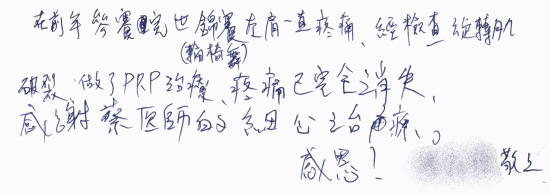 在前年參賽完世錦賽左肩一直疼痛、經檢查旋轉肌
(輪椅舞)
破裂、做了PRP治療、疼痛已完全消失、
感謝蔡医師的細心治療、。
感恩! 敬上